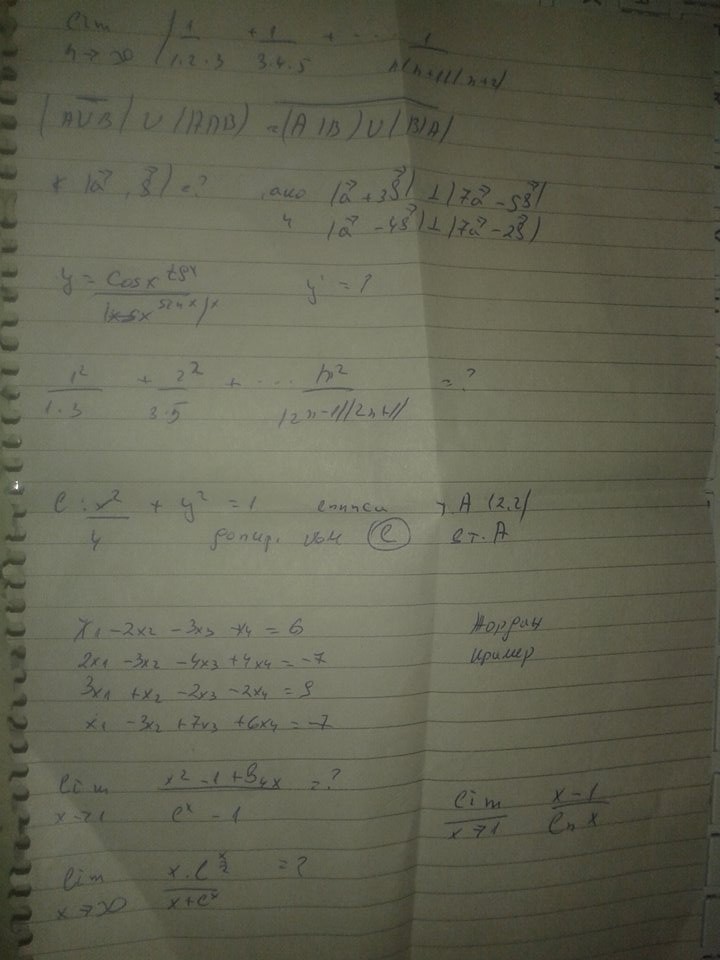 lim n→∞ (1/1.2.3 + 1/3.4.5 + ... 1/n(n+1)(n+2))
(A̅U̅B̅) U (A∩B) = (A\B) U (B\A)
(a⃗, b⃗) = ? ако (a⃗ + 3b⃗) ⊥ (7a⃗ - 5b⃗)
и (a⃗ - 4b⃗) ⊥ (7a⃗ - 2b⃗)
y = cosx^tgx / ( x^sinx)^x y' = ?
1²/1.3 + 2²/3.5 + ... n²/(2n-1)(2n+1) = ?
C: x²/4 + y² = 1 елипса т. A (2,2)
допир. към C в т. A
x1 - 2x2 - 3x3 - x4 = 6 Жордан
2x1 - 3x2 - 4x3 + 4x4 = -7 Крамер
3x1 + x2 - 2x3 - 2x4 = 9
x1 - 3x2 + 7x3 + 6x4 = -7
lim x→1 x² - 1 + / e^x - 1 = ? lim x→1 x-1 / ln x
lim x→∞ x.e^(x/2) / x+e^x = ?